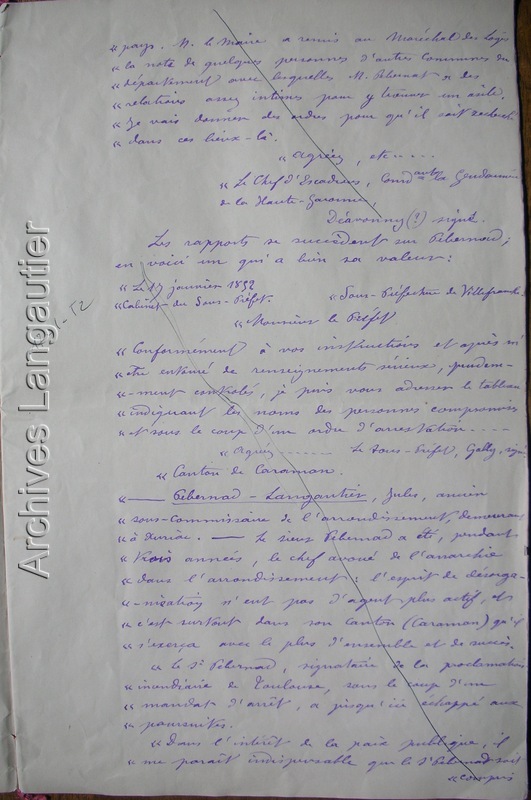 « pays. M. le Maire a remis au Maréchal des logis
« la note de quelques personnes d'autres communes du
« département avec lesquelles M. Pebernat a des
« relations assez intimes pour y trouver un asile.
« Je vais donner des ordres pour qu'il soit recherché
« dans ces lieux-là.
« agréez, etc....
« Le Chef d'Escadrons, Comd la Gendarmerie
de la Haute-Garonne,
(?) signé.
Les rapports se succèdent sur Pebernad;
en voici un qui a bien sa valeur:
« Le 17 janvier 1852
« Cabinet du Sous-Préfet. « Sous-Préfecture de Villefranche
« Monsieur le Préfet
« Conformément à vos instructions et après m'
« être entouré de renseignements sérieux, prudem-
« -ment contrôlés, je puis vous adresser le tableau
« indiquant les noms des personnes compromises
« et sous le coup d'un ordre d'arrestation....
« Agréez ...... Le Sous-Préfet, Gally, signé
« Canton de Caraman.
« — Pebernad-Langautier, Jules, ancien
« sous-commissaire de l'arrondissement, demeurant
« à . — Le sieur Pebernad a été, pendant
« trois années, le chef avoué de l'anarchie
« dans l'arrondissement: l'esprit de désorga-
« -nisation n'eut pas d'agent plus actif, et
« c'est surtout dans son canton (Caraman) qu'il
« s'exerça avec le plus d'ensemble et de succès.
« Le Sr Pebernad, signataire de la proclamation
« incendiaire de Toulouse, sous le coup d'un
« mandat d'arrêt, a jusqu'ici échappé aux
« poursuites.
« Dans l'intérêt de la paix publique, il
« me paraît indispensable que le Sr Pebernad soit
« compris
Archives Langautier